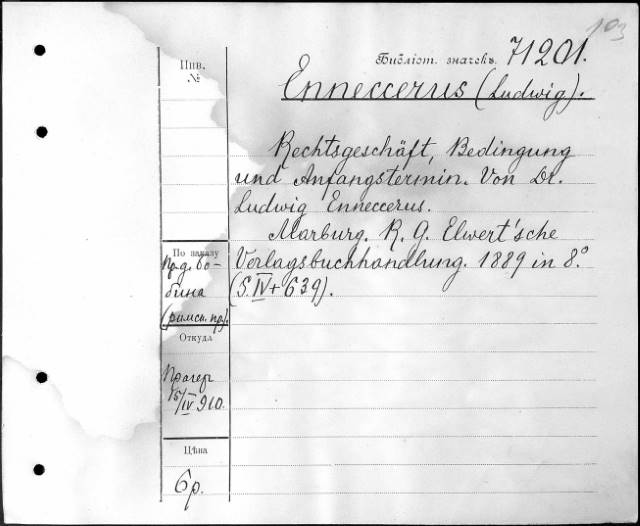 103
Библіот. значекъ 71201.
Инв.
№
Enneccerus (Ludwig).
Rechtsgeschäft, Bedingung
und Anfangstermin. Von Dr.
Ludwig Enneccerus.
Marburg. R. G. Elwert'sche
Verlagsbuchhandlung. 1889 in 8.°
(S. IV + 639).
По заказу
бина
(римск. пр).
Откуда
Прагер
15/IV 910.
Цѣна
6 р.